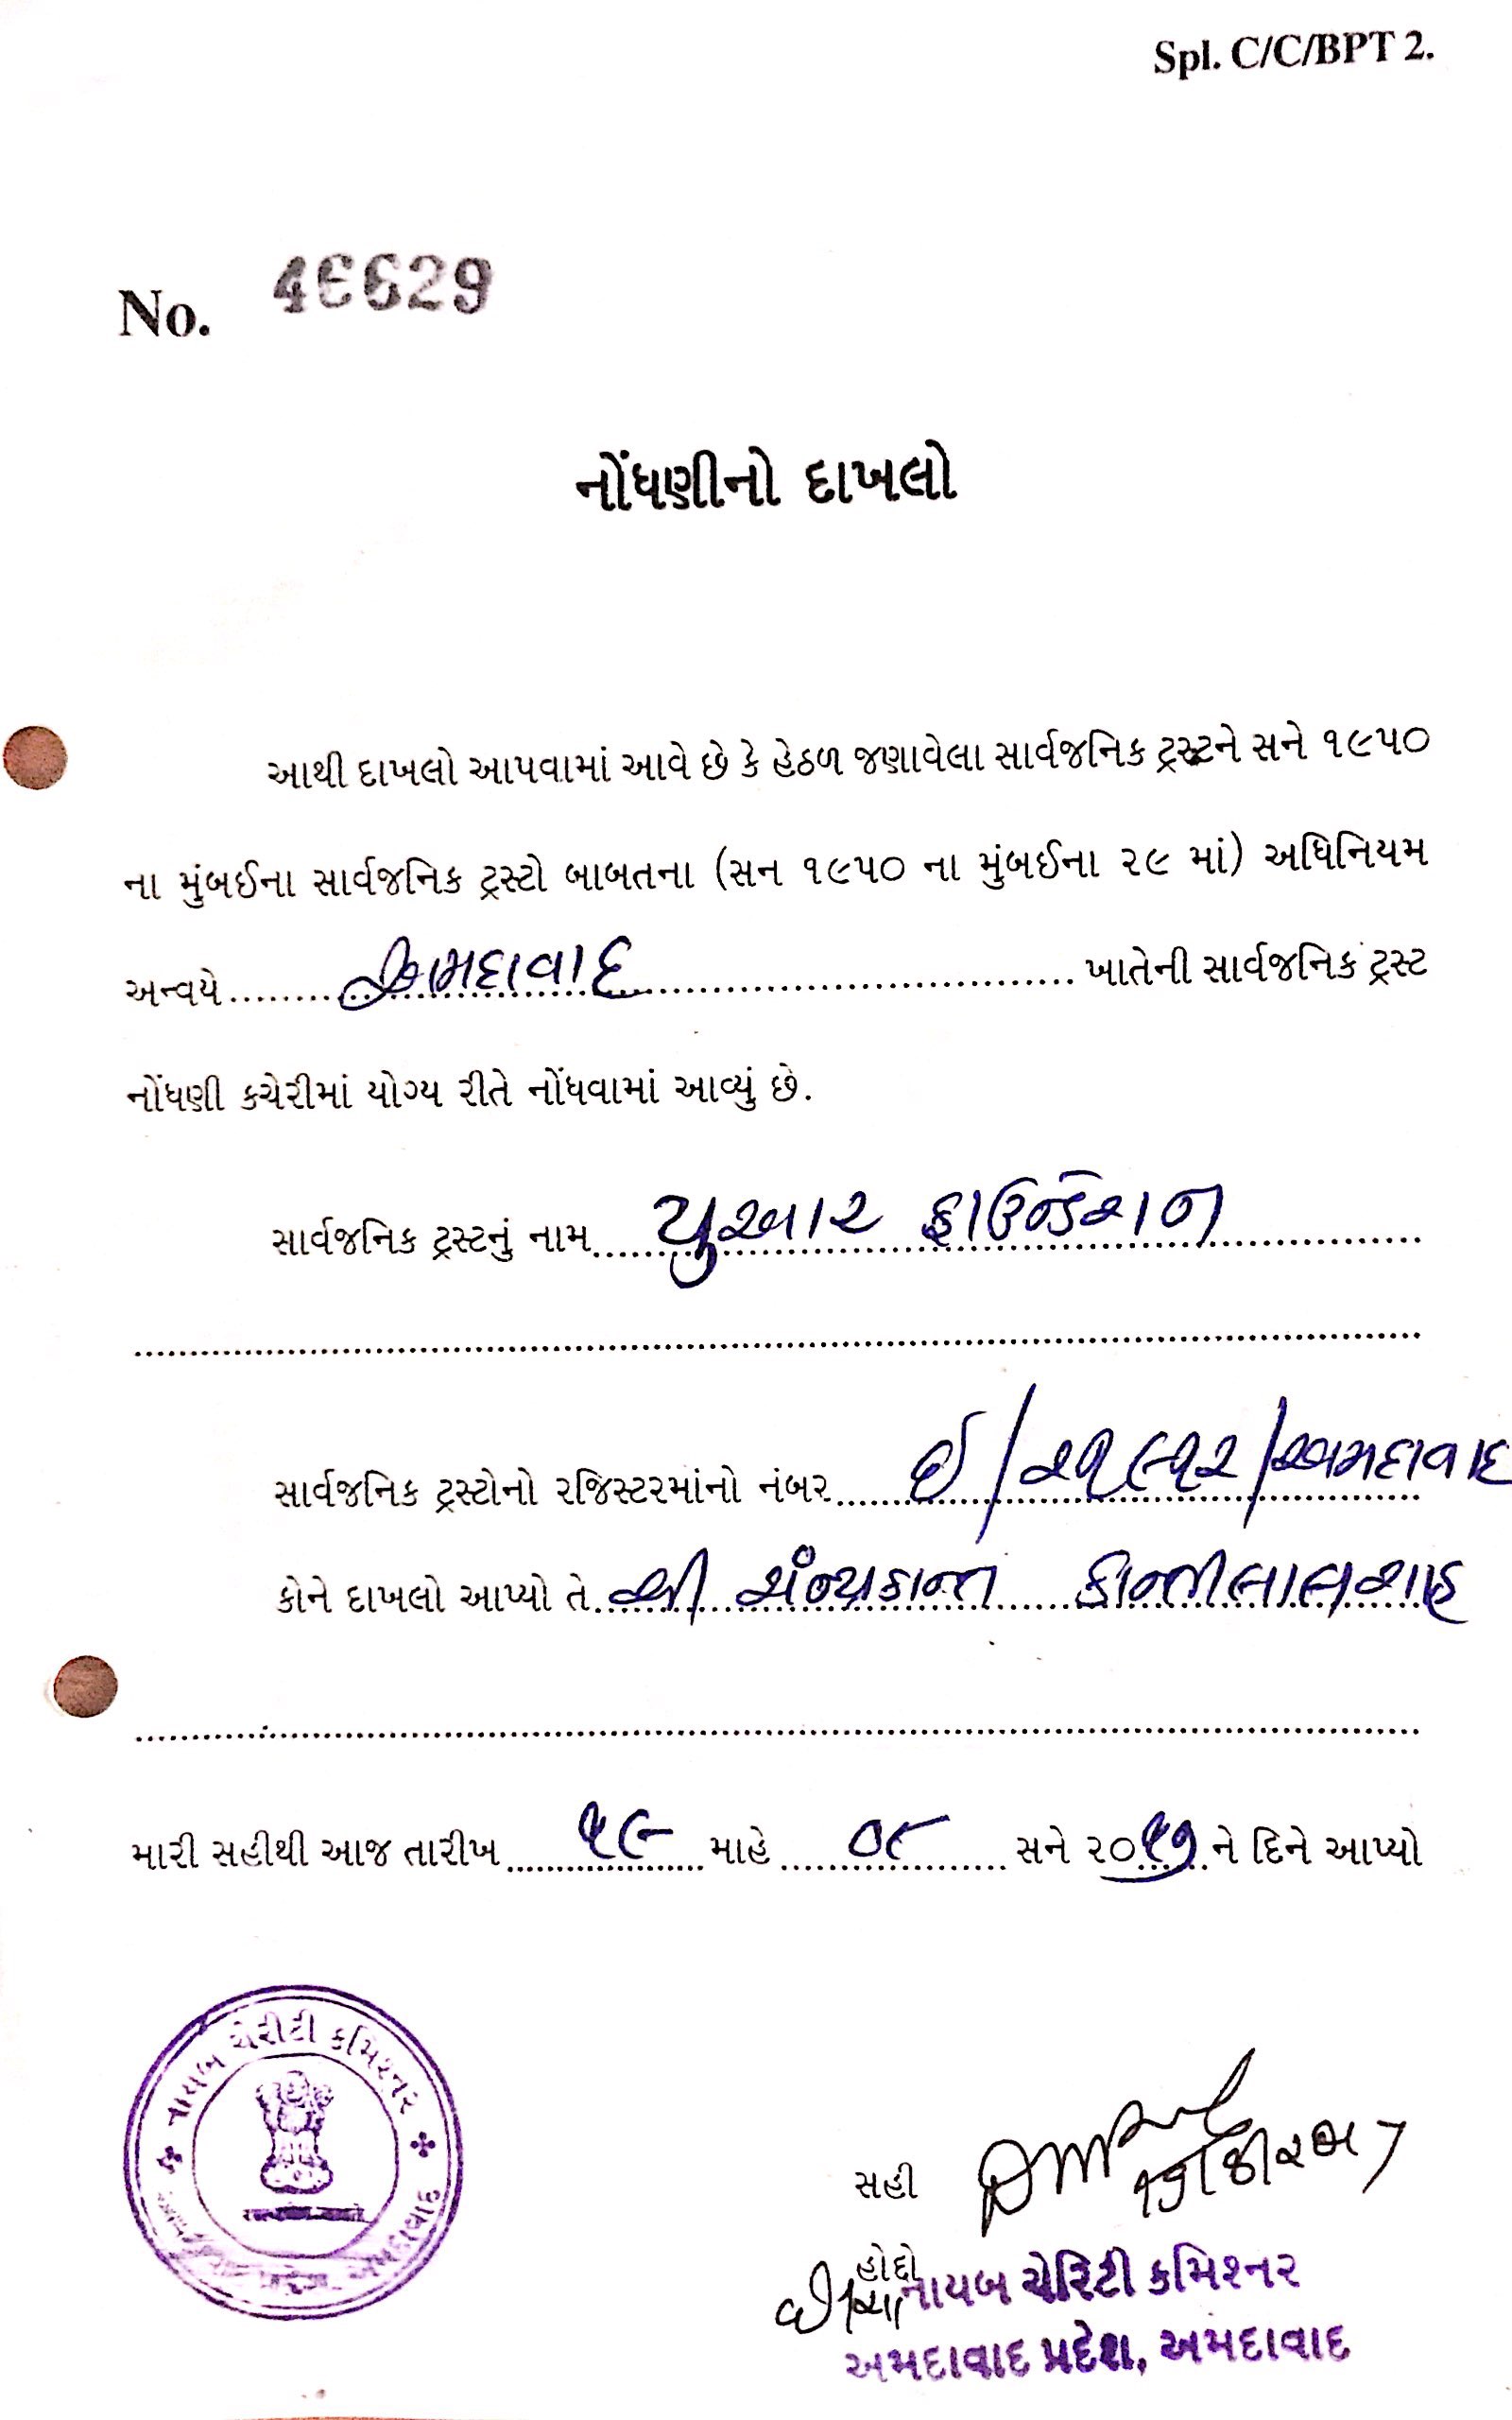 Spl. C/C/BPT 2.
No. 46629
નોંધણીનો દાખલો
આથી દાખલો આપવામાં આવે છે કે હેઠળ જણાવેલા સાર્વજનિક ટ્રસ્ટને સને ૧૯૫૦
ના મુંબઈના સાર્વજનિક ટ્રસ્ટો બાબતના (સન ૧૯૫૦ ના મુંબઈના ૨૯ માં) અધિનિયમ
અન્વયે અમદાવાદ ખાતેની સાર્વજનિક ટ્રસ્ટ
નોંધણી કચેરીમાં યોગ્ય રીતે નોંધવામાં આવ્યું છે.
સાર્વજનિક ટ્રસ્ટનું નામ યુઆર ફાઉન્ડેશન
સાર્વજનિક ટ્રસ્ટોનો રજિસ્ટરમાંનો નંબર ઈ/૨૧૯૧૨/અમદાવાદ
કોને દાખલો આપ્યો તે શ્રી કાન્તીલાલ શાહ
મારી સહીથી આજ તારીખ ૧૯ માહે ૦૮ સને ૨૦૧૭ ને દિને આપ્યો
નાયબ ચેરીટી કમિશ્નર
અમદાવાદ
સહી
હોદ્દો
નાયબ ચેરિટી કમિશ્નર
અમદાવાદ પ્રદેશ, અમદાવાદ